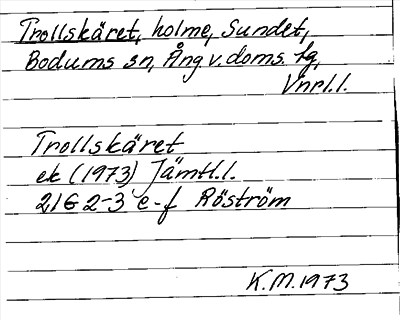 Trollskäret, holme, Sundet,
Bodums sn, Ång v. doms. lg,
Vnrl.l.
Trollskäret
ek (1973) Jämtl.l.
21G 2-3 e-f Röström
K.M. 1973